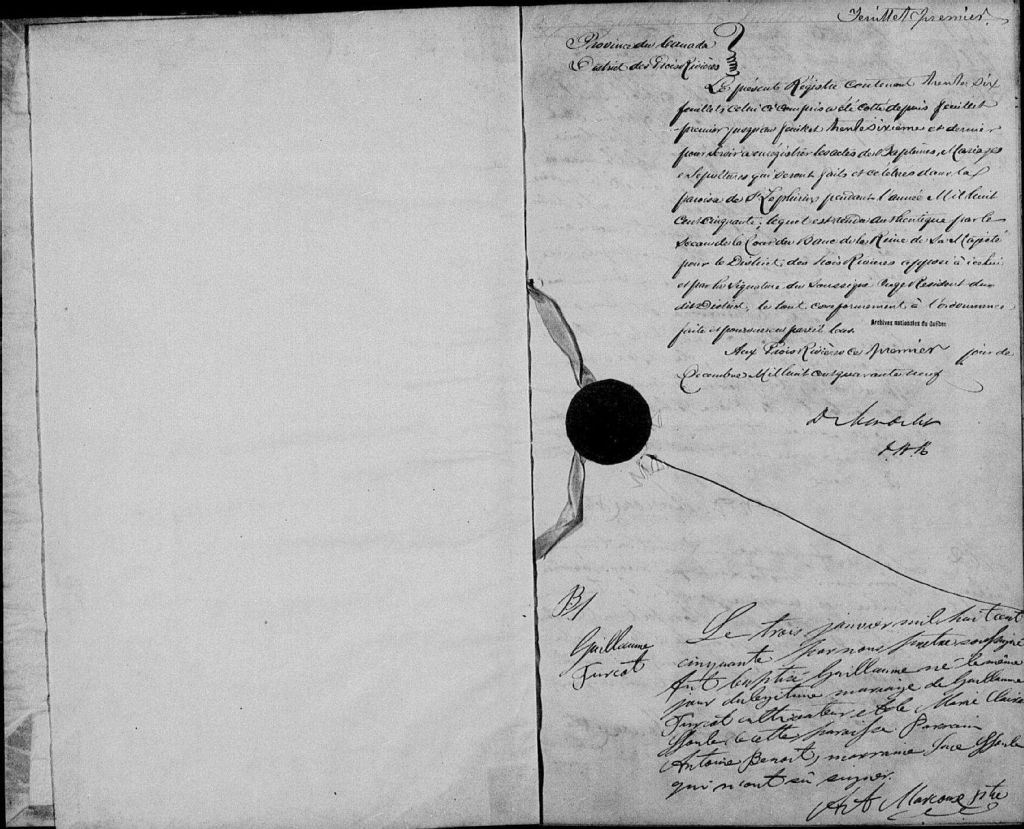 Feuillet premier.
Province du Canada
District des Trois Rivières
Le présent Régistre contenant trente six
feuillets, celui ci compris a été cotté depuis feuillet
premier jusqu'au feuillet trente sixième et dernier
pour servir a enrégistrer les actes des Baptêmes, Mariages
& Sépultures qui seront faits et célébrés dans la
paroisse de St Zéphirin pendant l'année Mil huit
Cent cinquante; lequel est rendu authentique par le
Sceau de la Cour du Banc de la Reine de Sa Majesté
pour le District des Trois Rivières apposé à icelui
et par la signature du Soussigné Juge Résident du
dit District, le tout conformement à l'ordonnance
faite et pourvue en pareil cas.
Archives nationales du Québec
Aux Trois Rivières ce premier jour de
Decembre Mil huit cent quarante neuf
B1
Guillaume
Turcot
Le trois janvier mil huit cent
cinquante par nous prêtre soussigné
fut baptisé Guillaume né le même
jour du légitime mariage de Guillaume
Turcot cultivateur et de Marie Claire
de cette paroisse Parrain
Antoine Benoit, marraine
qui n'ont su signer.
Marcoux ptre